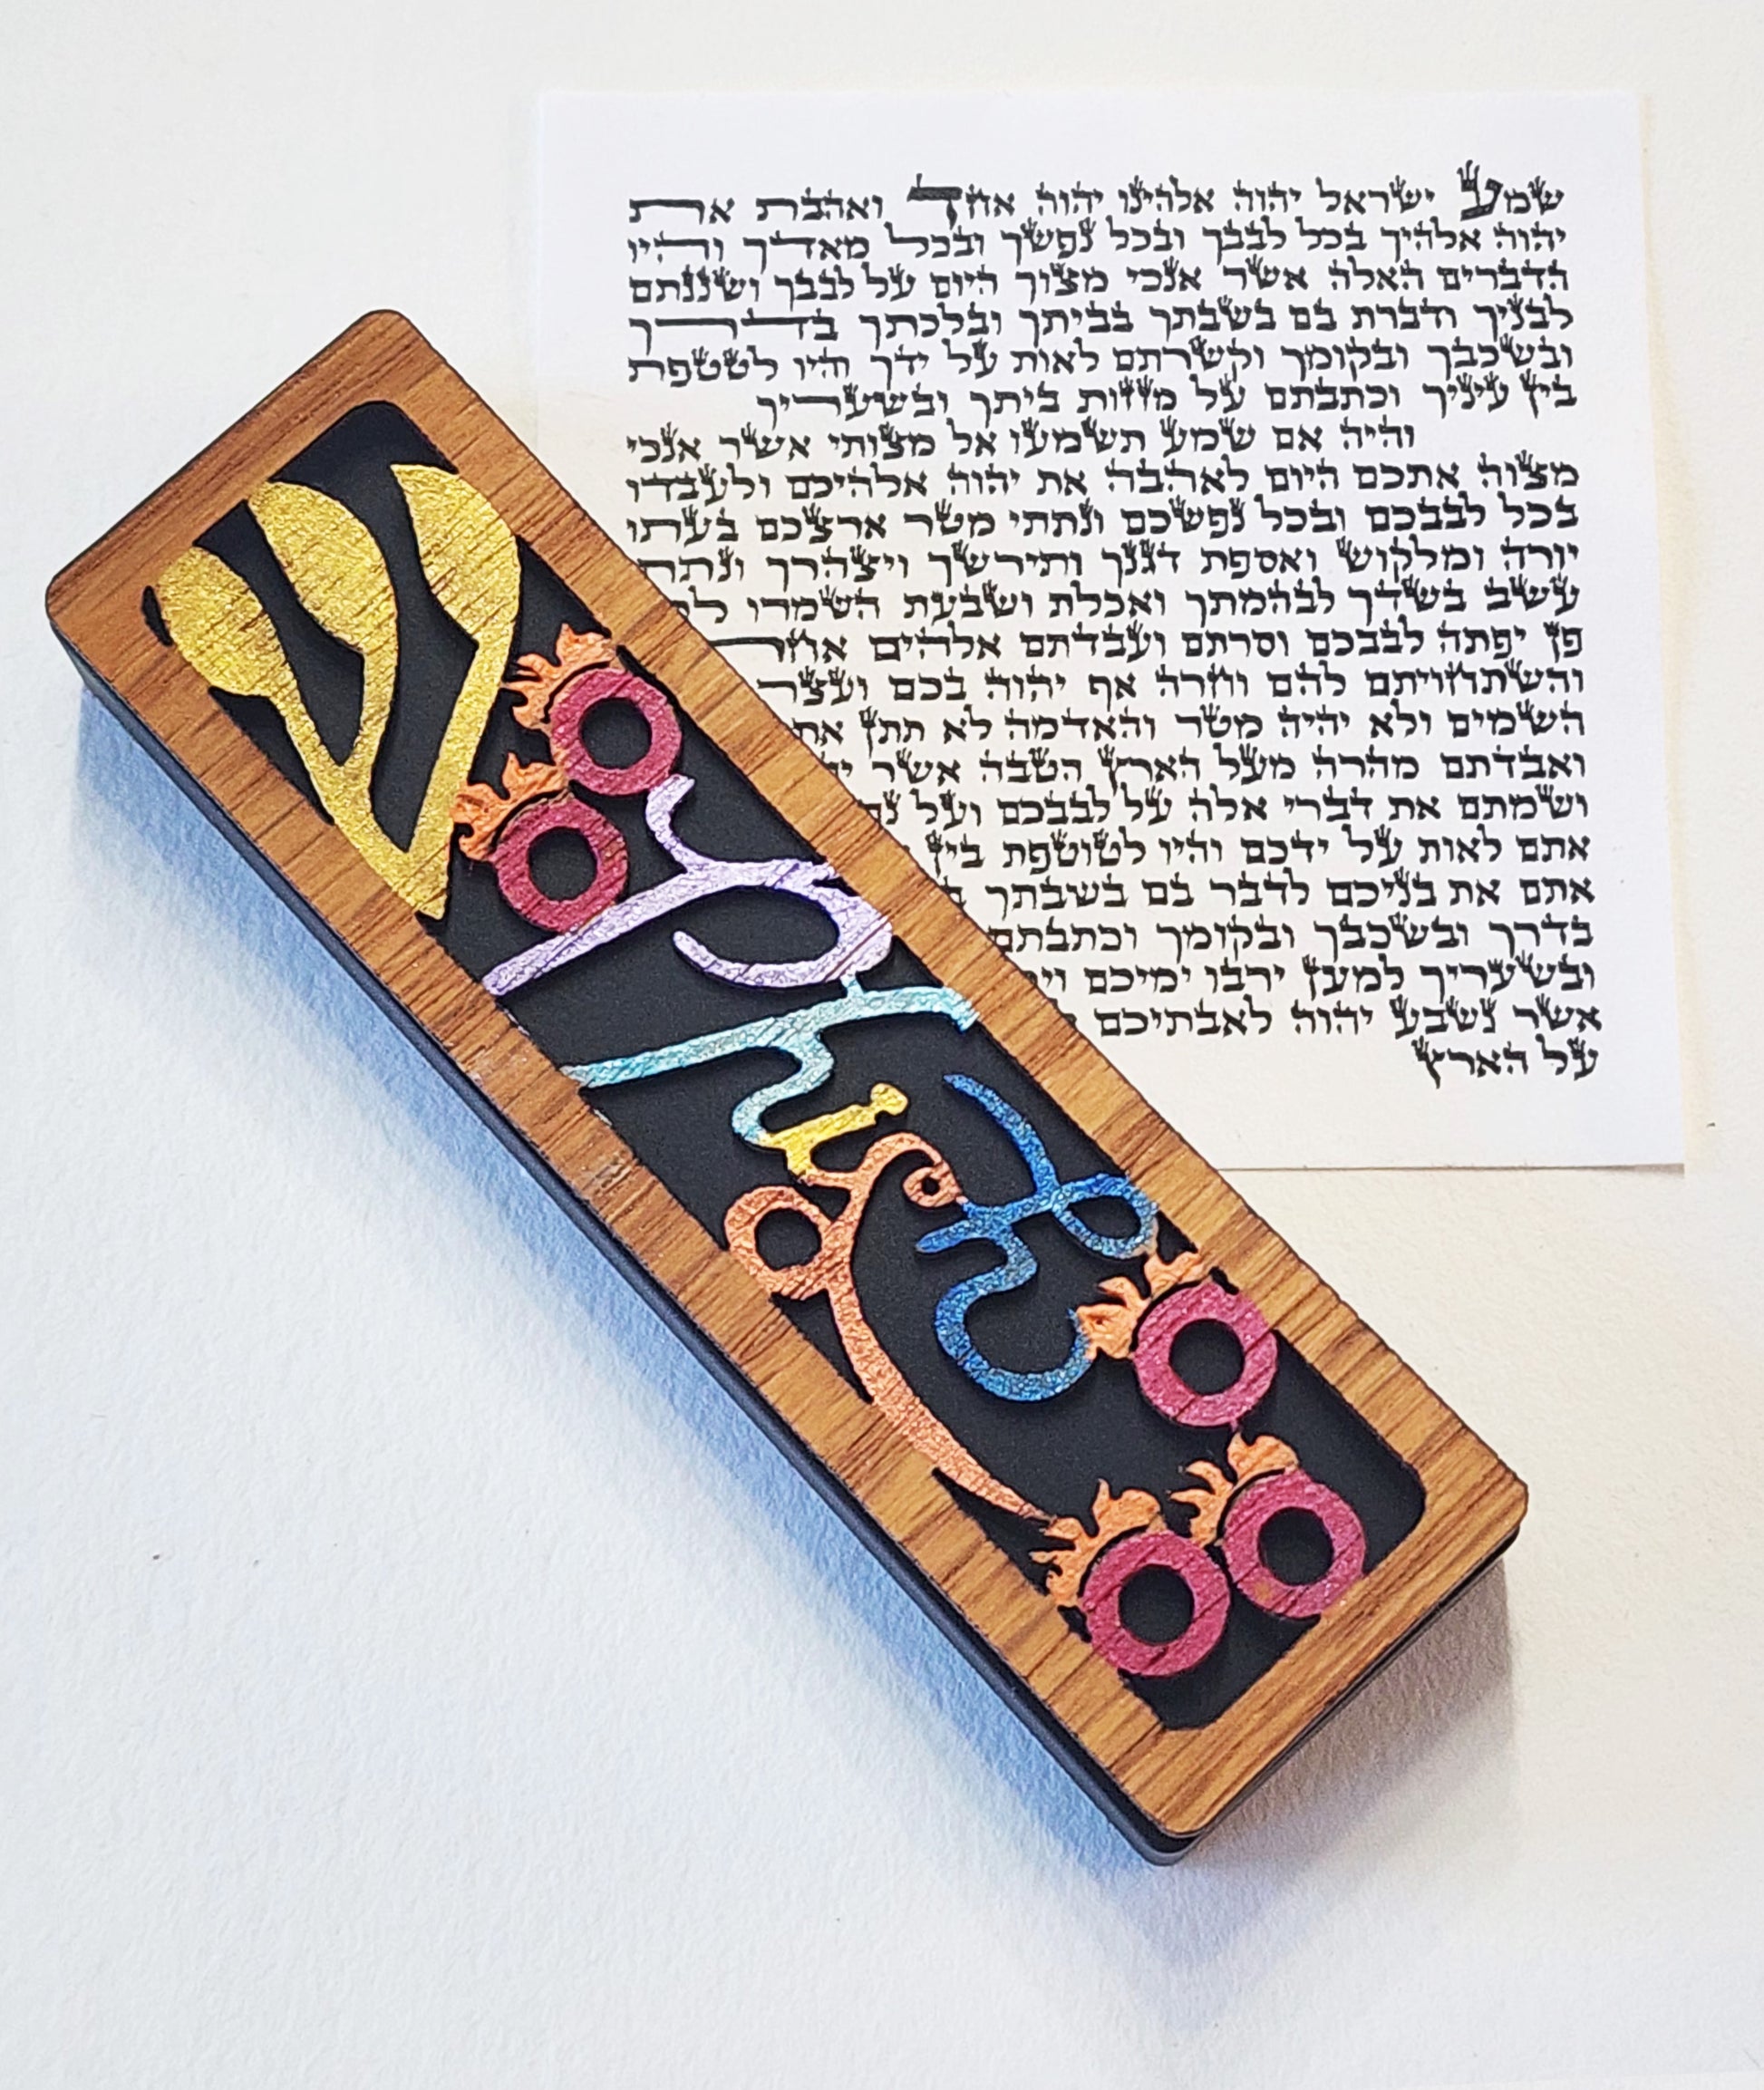 ש
שמע ישראל יהוה אלהינו יהוה אחד ואהבת את
יהוה אלהיך בכל לבבך ובכל נפשך ובכל מאדך והיו
הדברים האלה אשר אנכי מצוך היום על לבבך ושננתם
לבניך ודברת בם בשבתך בביתך ובלכתך בדרך
ובשכבך ובקומך וקשרתם לאות על ידך והיו לטטפת
בין עיניך וכתבתם על מזזות ביתך ובשעריך
והיה אם שמע תשמעו אל מצותי אשר אנכי
מצוה אתכם היום לאהבה את יהוה אלהיכם ולעבדו
בכל לבבכם ובכל נפשכם ונתתי מטר ארצכם בעתו
יורה ומלקוש ואספת דגנך ותירשך ויצהרך
עשב בשדך לבהמתך ואכלת ושבעת השמרו
פן יפתה לבבכם וסרתם ועבדתם אלהים
והשתחויתם להם וחרה אף יהוה בכם ועצר
השמים ולא יהיה מטר והאדמה לא תתן את
ואבדתם מהרה מעל הארץ הטבה אשר
ושמתם את דברי אלה על לבבכם ועל
אתם לאות על ידכם והיו לטוטפת בין
אתם את בניכם לדבר בם בשבתך
בדרך ובשכבך ובקומך וכתבתם
ובשעריך למען ירבו ימיכם
אשר נשבע יהוה לאבתיכם
על הארץ